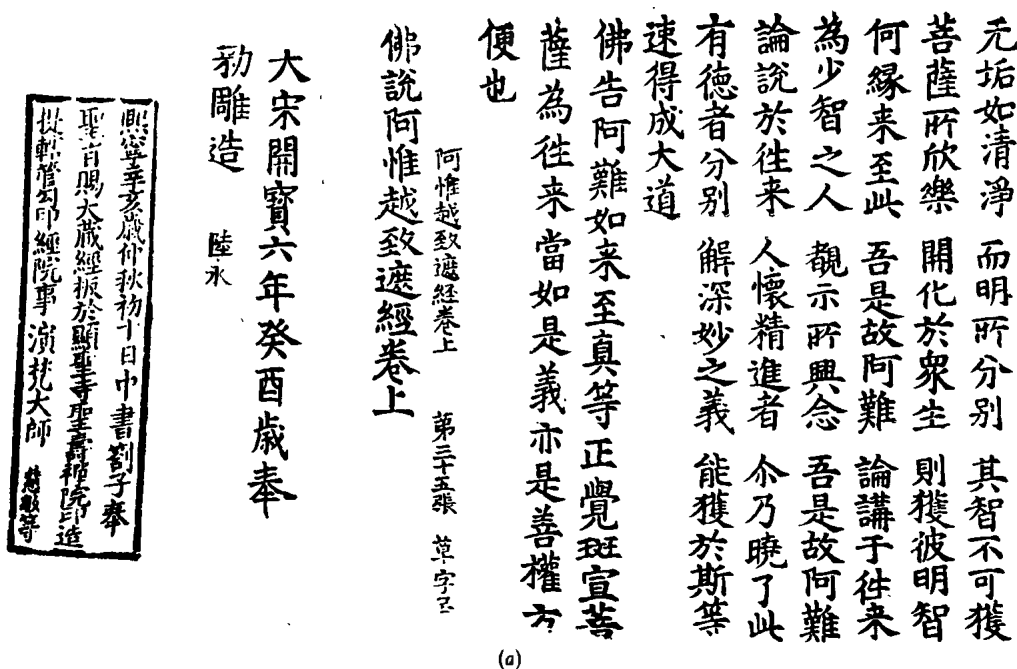 无垢如清淨 而明所分别 其智不可獲
菩薩所欣樂 開化於衆生 則獲彼明智
何縁来至此 吾是故阿難 論講于徃来
為少智之人 覩示所興念 吾是故阿難
論說於徃来 人懷精進者 尒乃曉了此
有德者分别 解深妙之義 能獲於斯等
速得成大道
佛告阿難如来至真等正覺班宣菩
薩為徃来當如是義亦是善權方
便也
阿惟越致遮経卷上 第三十五張 草字号
佛說阿惟越致遮經卷上
大宋開寶六年癸酉歳奉
勑雕造 陸永
熙寧辛亥歳仲秋初十日中書劄子奉
聖旨賜大藏經板於顯聖寺聖壽禪院印造
提轄管勾印經院事演梵大師 慧敏等
(a)